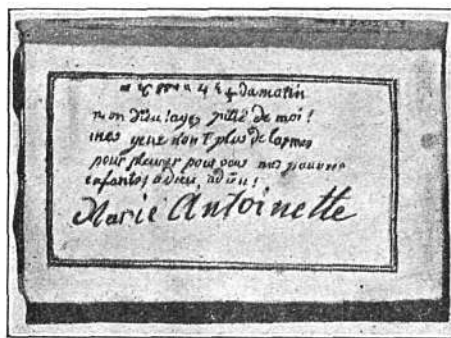 à 4 h ½ du matin
mon dieu! ayez pitié de moi!
mes yeux n'ont plus de larmes
pour pleurer pour vous mes pauvres
enfants; adieu, adieu!
Marie Antoinette